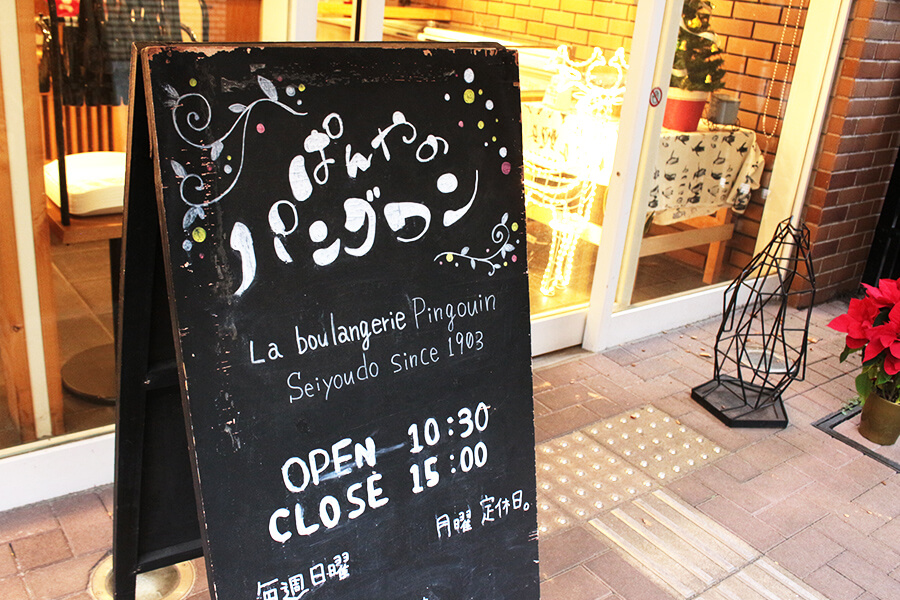 ぱんやの
パングワン
La boulangerie Pingouin
Seiyoudo since 1903
OPEN 10:30
CLOSE 15:00
毎週日曜 月曜 定休日。